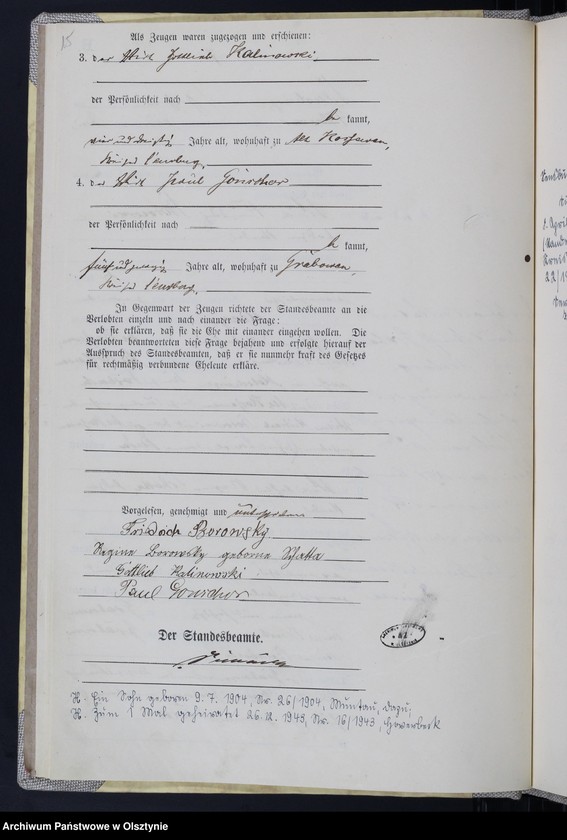 15
Als Zeugen waren zugezogen und erschienen:
3. der Wirt Gottlieb Kalinowski
der Persönlichkeit nach
be kannt,
vier und dreißig Jahre alt, wohnhaft zu Alt
Kreises Sensburg.
4. der Wirt Paul
der Persönlichkeit nach
be kannt,
Jahre alt, wohnhaft zu Grabowen,
Kreises Sensburg.
In Gegenwart der Zeugen richtete der Standesbeamte an die
Verlobten einzeln und nach einander die Frage:
ob sie erklären, daß sie die Ehe mit einander eingehen wollen. Die
Verlobten beantworteten diese Frage bejahend und erfolgte hierauf der
Ausspruch des Standesbeamten, daß er sie nunmehr kraft des Gesetzes
für rechtmäßig verbundene Eheleute erkläre.
Vorgelesen, genehmigt und unterschrieben
Friedrich Borowsky
Regine Borowsky geborene
Gottlieb Kalinowski
Paul
Der Standesbeamte.
H. Ein Sohn geboren 9. 7. 1904, Nr. 26/1904, Muntau, dazu.
H. Zum 1 Mal geheiratet 26.12.1943, Nr. 16/1943, Haverbeck
Archiwum Państwowe w Olsztynie